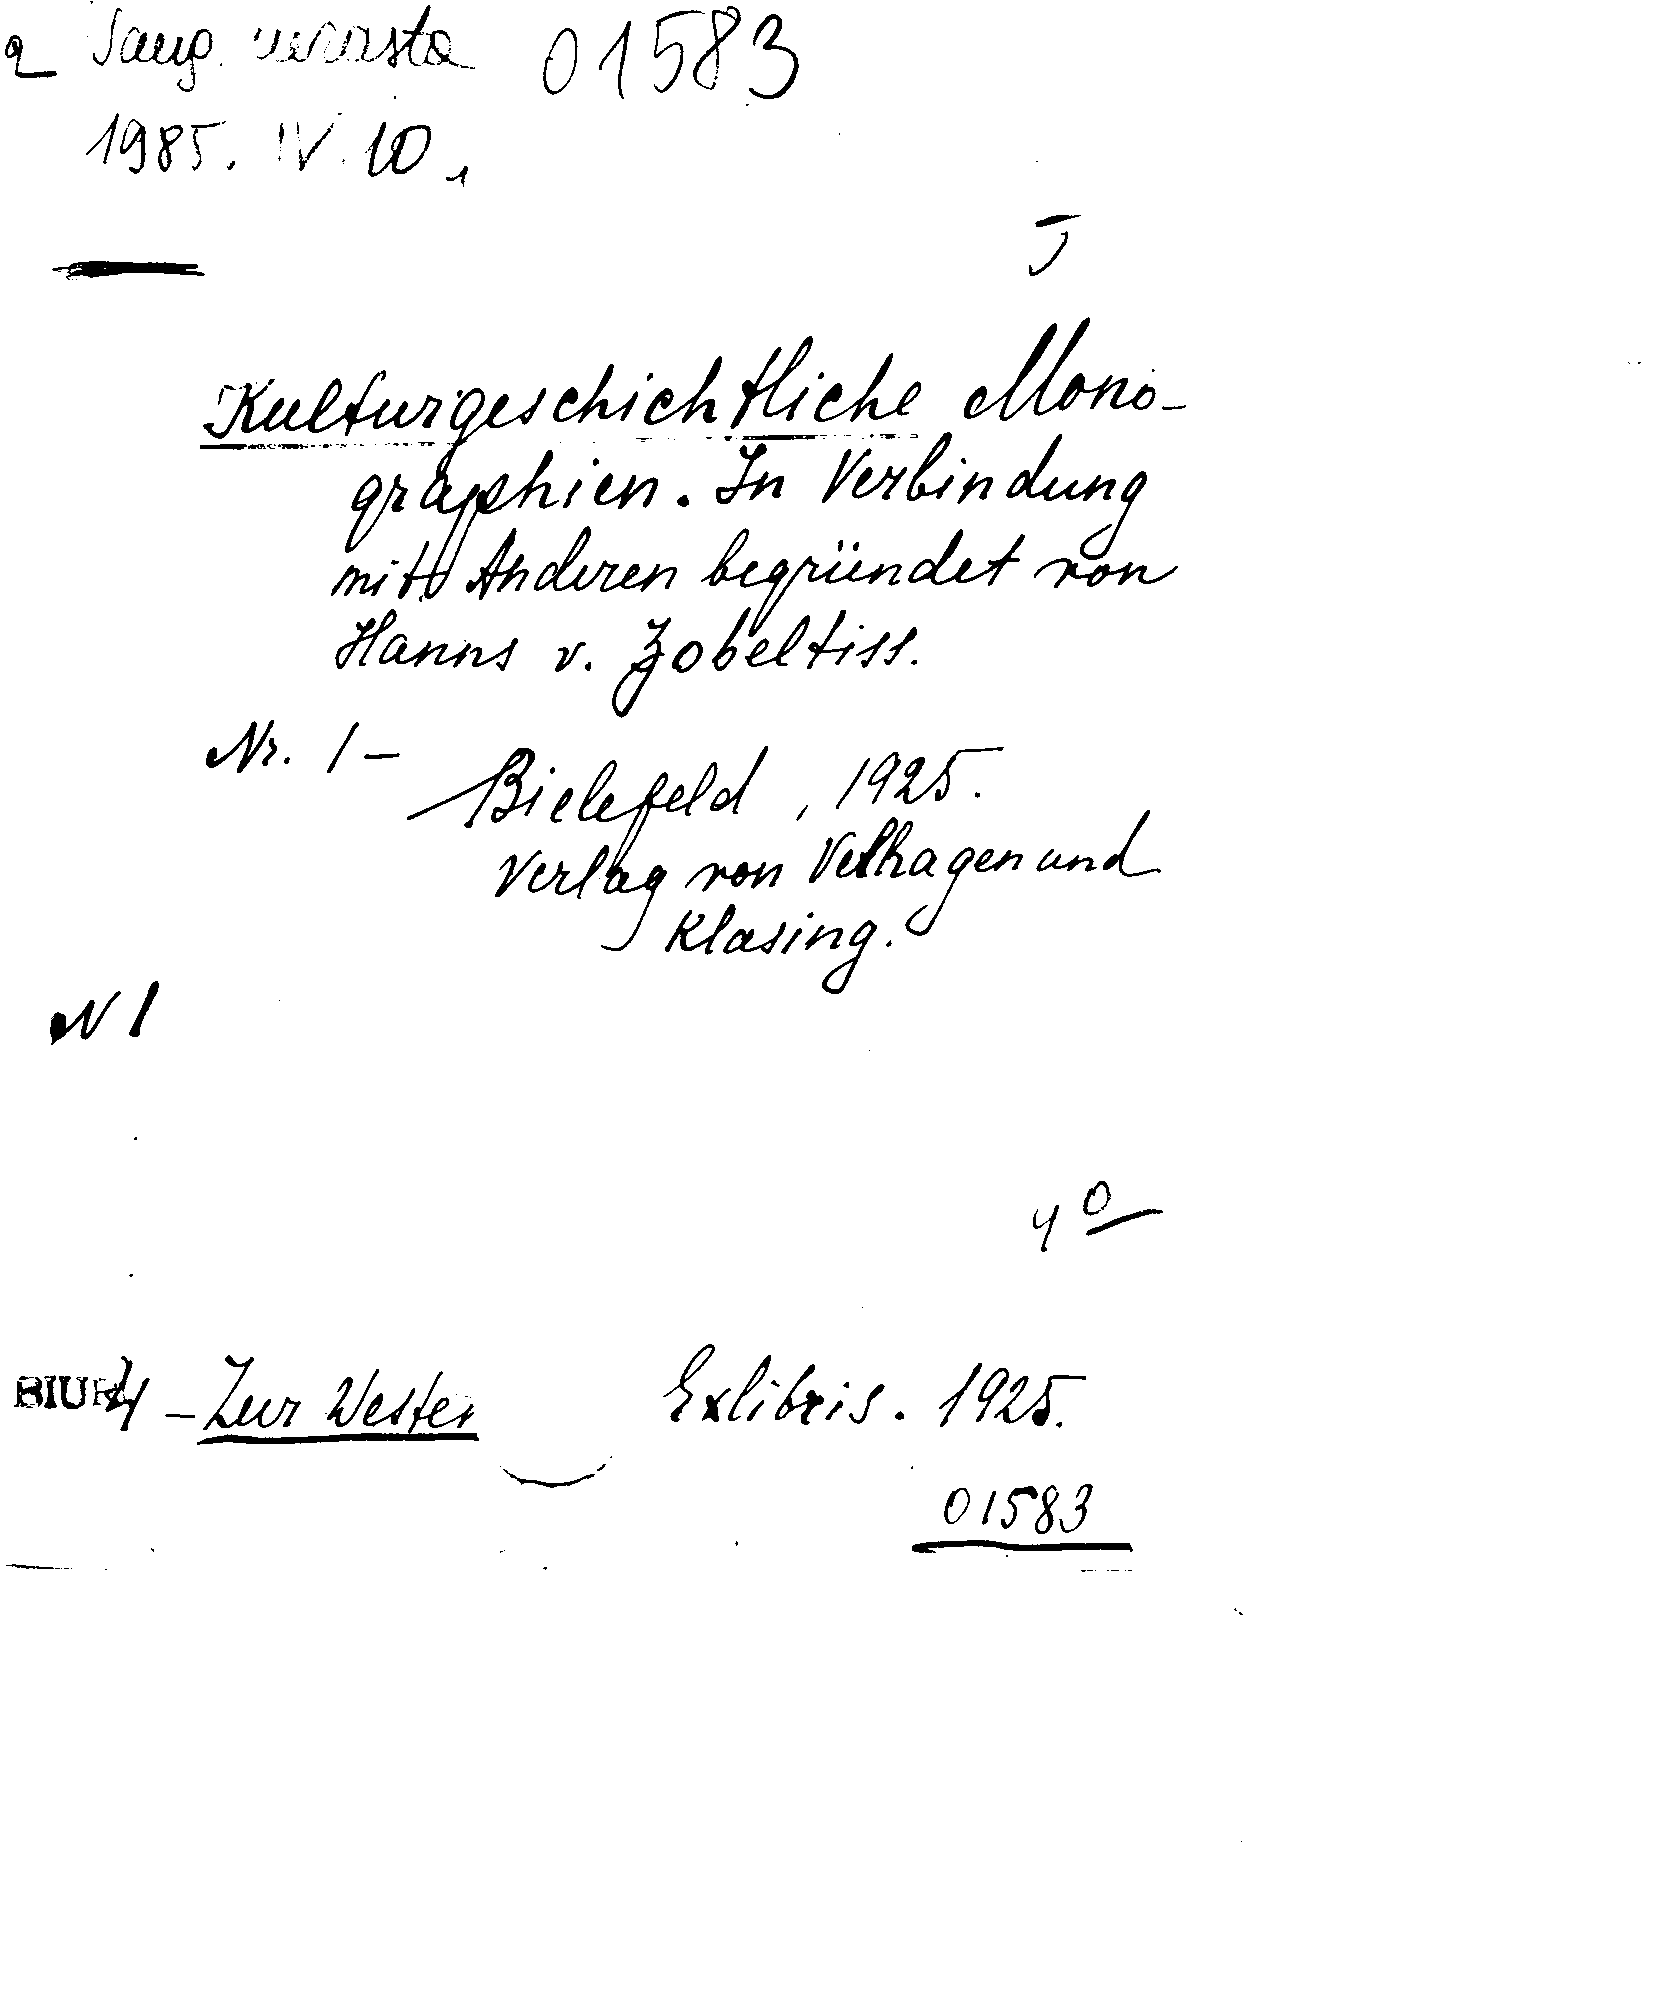 Saug. nerasta 01583
1985. IV. 10.
Kulturgeschichtliche Mono-
graphien. In Verbindung
mit Anderen begründet von
Hanns v. Zobeltiss.
Nr. 1-
Bielefeld, 1925.
Verlag von Velhagen und
Klasing.
N 1
4°
4 - Zur Wester Exlibris. 1925.
01583